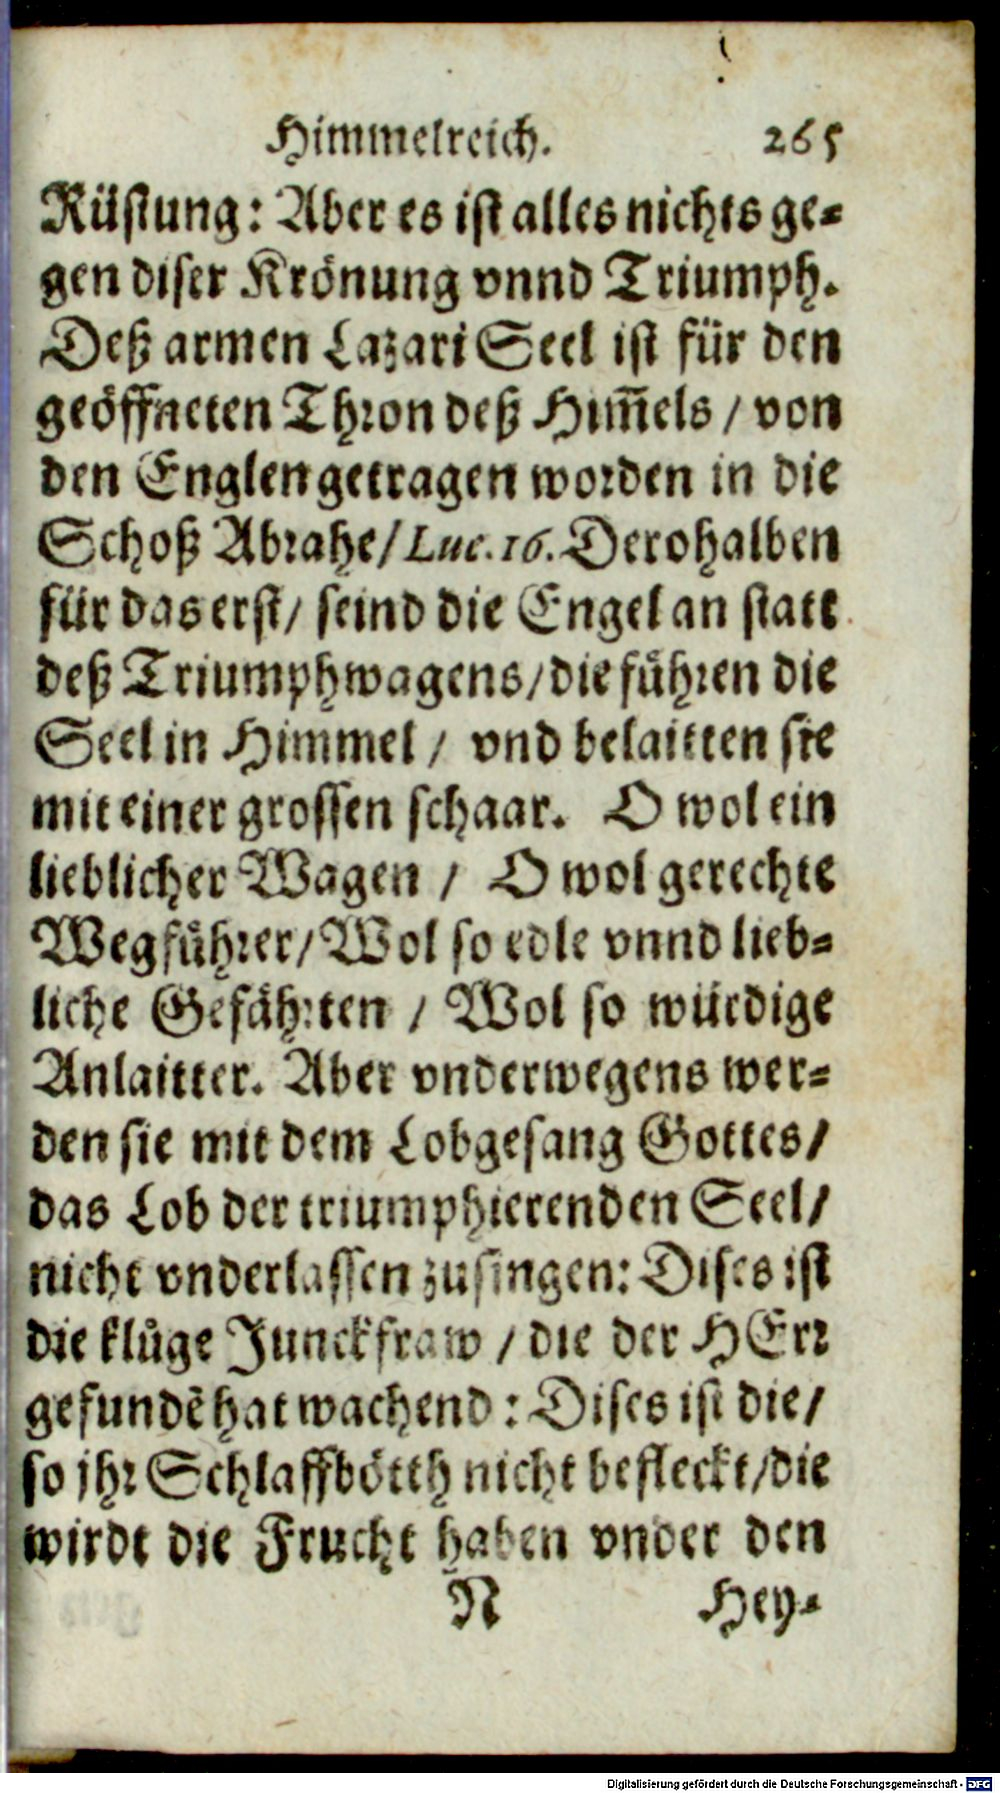 Himmelreich. 265
Rüstung: Aber es ist alles nichts ge-
gen diser Krönung vnnd Triumph.
Deß armen Lazari Seel ist für den
geöffneten Thron deß Him̃els / von
den Englen getragen worden in die
Schoß Abrahe / Luc. 16. Derohalben
für das erst / seind die Engel an statt
deß Triumphwagens / die führen die
Seel in Himmel / vnd belaitten sie
mit einer grossen schaar. O wol ein
lieblicher Wagen / O wol gerechte
Wegführer / Wol so edle vnnd lieb-
liche Gefährten / Wol so würdige
Anlaitter. Aber vnderwegens wer-
den sie mit dem Lobgesang Gottes /
das Lob der triumphierenden Seel /
nicht vnderlassen zusingen: Dises ist
die kluge Junckfraw / die der HErr
gefundẽ hat wachend: Dises ist die /
so jhr Schlaffbötth nicht befleckt / die
wirdt die Frucht haben vnder den
N Hey-
Digitalisierung gefördert durch die Deutsche Forschungsgemeinschaft - DFG